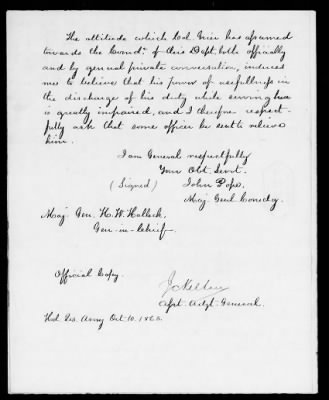 The attitude which Col. Grier has assumed
towards the Comdr. of this Dept. both officially
and by general private conversation, induces
me to believe that his power of usefulness in
the discharge of his duty while serving here
is greatly impaired, and I therefore respect-
fully ask that some officer be sent to relieve
him.
I am General respectfully
Your Obt. Servt.
(Signed) John Pope
Maj. Genl. Comdg.
Maj. Gen. H. W. Halleck,
Gen-in-Chief.
Official Copy.
J C Kelton
Asst. Adjt. General.
Hd. Qrs. Army Oct. 10. 1863.